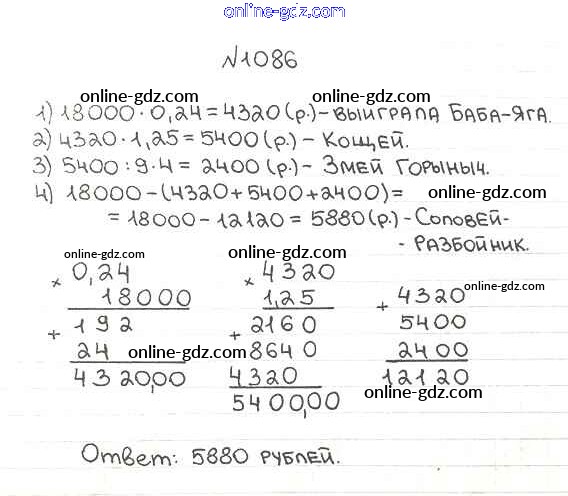 online-gdz.com
№1086
online-gdz.com online-gdz.com
1) 18000 · 0,24 = 4320 (р.) - выиграла Баба-Яга.
2) 4320 · 1,25 = 5400 (р.) - Кощей.
3) 5400 : 9 · 4 = 2400 (р.) - Змей Горыныч.
4) 18000 - (4320 + 5400 + 2400) = online-gdz.com
= 18000 - 12120 = 5880 (р.) - Соловей-
- разбойник.
online-gdz.com online-gdz.com online-gdz.com
× 0,24 × 4320 + 4320
18000 1,25 5400
+ 192 + 2160 2400
24 online-gdz.com 8640 12120
4320,00 4320 online-gdz.com
5400,00
Ответ: 5880 рублей.
online-gdz.com online-gdz.com